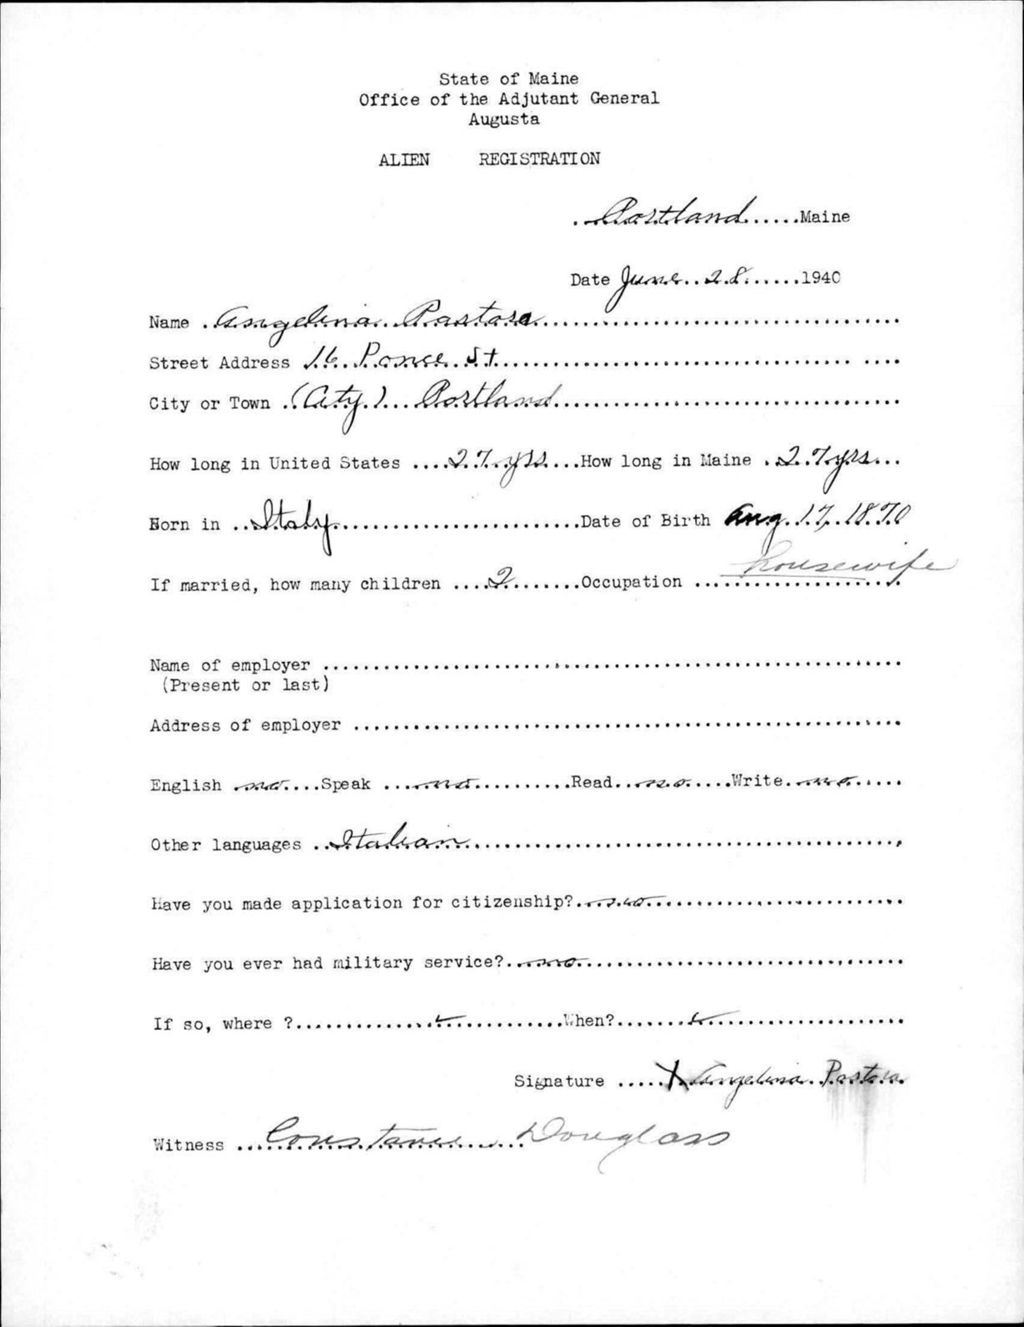 State of Maine
Office of the Adjutant General
Augusta
ALIEN REGISTRATION
Portland Maine
Date June 28 1940
Name Angelina Pastore
Street Address 16 Ponce St
City or Town (City) Portland
How long in United States 27 yrs How long in Maine 27 yrs
Born in Italy Date of Birth Aug. 17, 1870
If married, how many children 2 Occupation housewife
Name of employer
(Present or last)
Address of employer
English no Speak no Read no Write no
Other languages Italian
Have you made application for citizenship? no
Have you ever had military service? no
If so, where ? When?
Signature X Angelina Pastore
Witness Constance Douglass